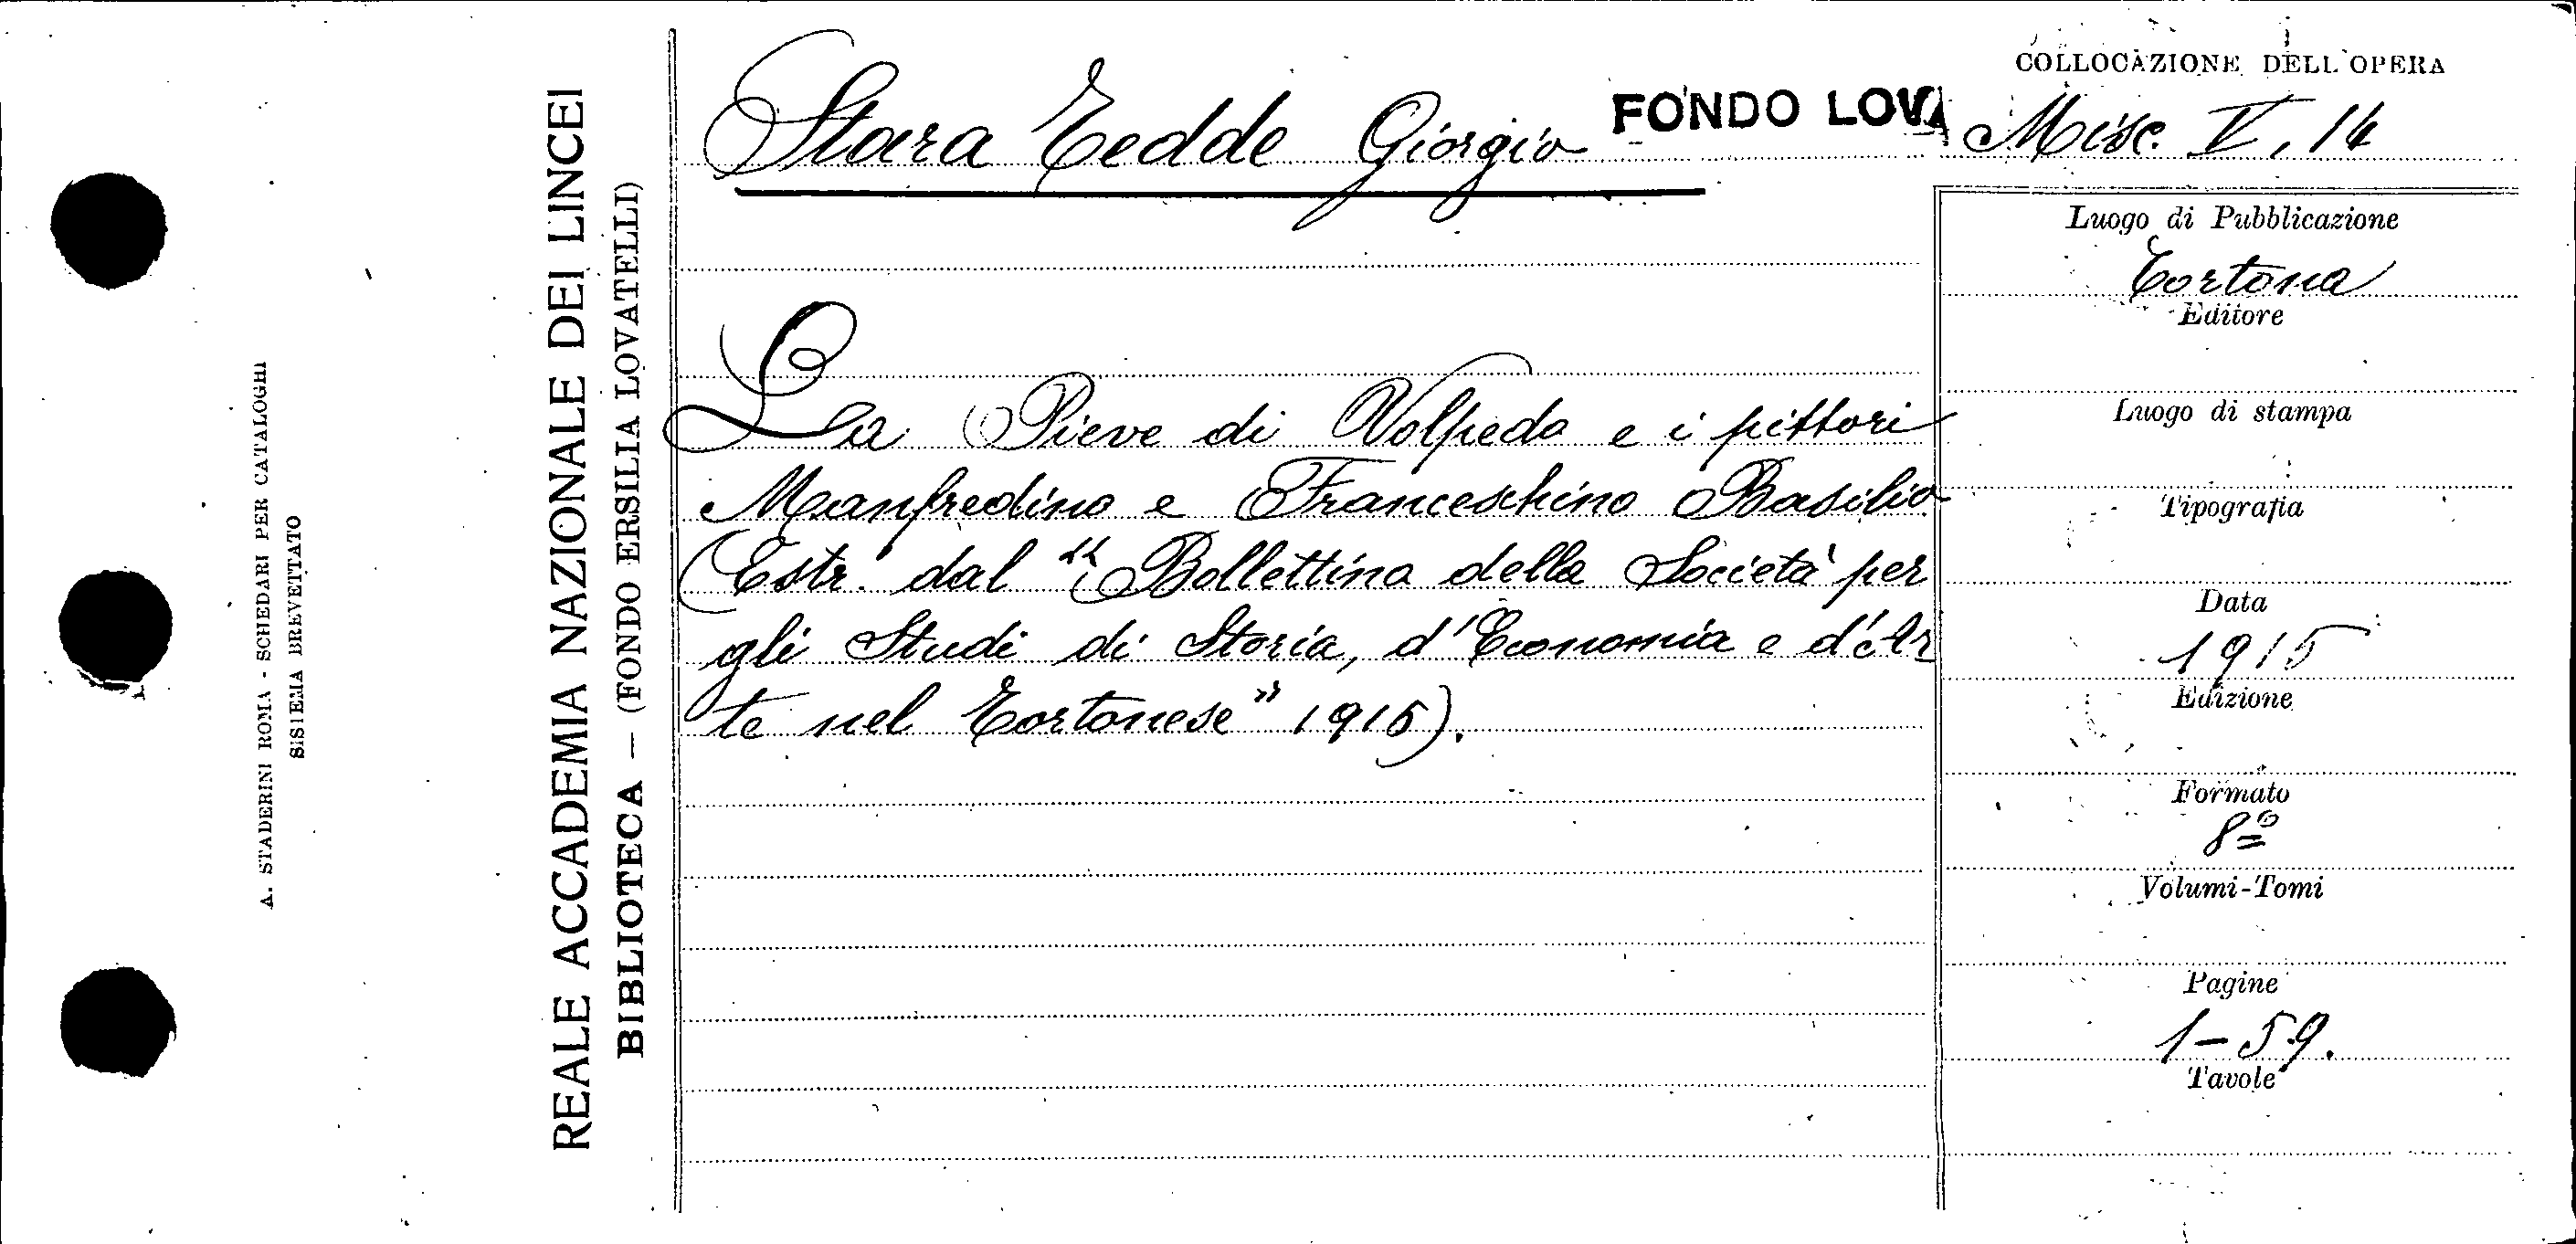 A. STADERINI ROMA - SCHEDARI PER CATALOGHI
SISTEMA BREVETTATO
REALE ACCADEMIA NAZIONALE DEI LINCEI
BIBLIOTECA — (FONDO ERSILIA LOVATELLI)
Stara Tedde Giorgio
FONDO LOVA
La Pieve di Volpedo e i pittori
Manfredino e Franceschino Basilio
(Estr. dal "Bollettino della Società per
gli Studi di Storia, d'Economia e d'Ar
te nel Tortonese" 1915).
COLLOCAZIONE DELL'OPERA
Misc. V, 14
Luogo di Pubblicazione
Tortona
Editore
Luogo di stampa
Tipografia
Data
1915
Edizione
Formato
8º
Volumi-Tomi
Pagine
1-59.
Tavole